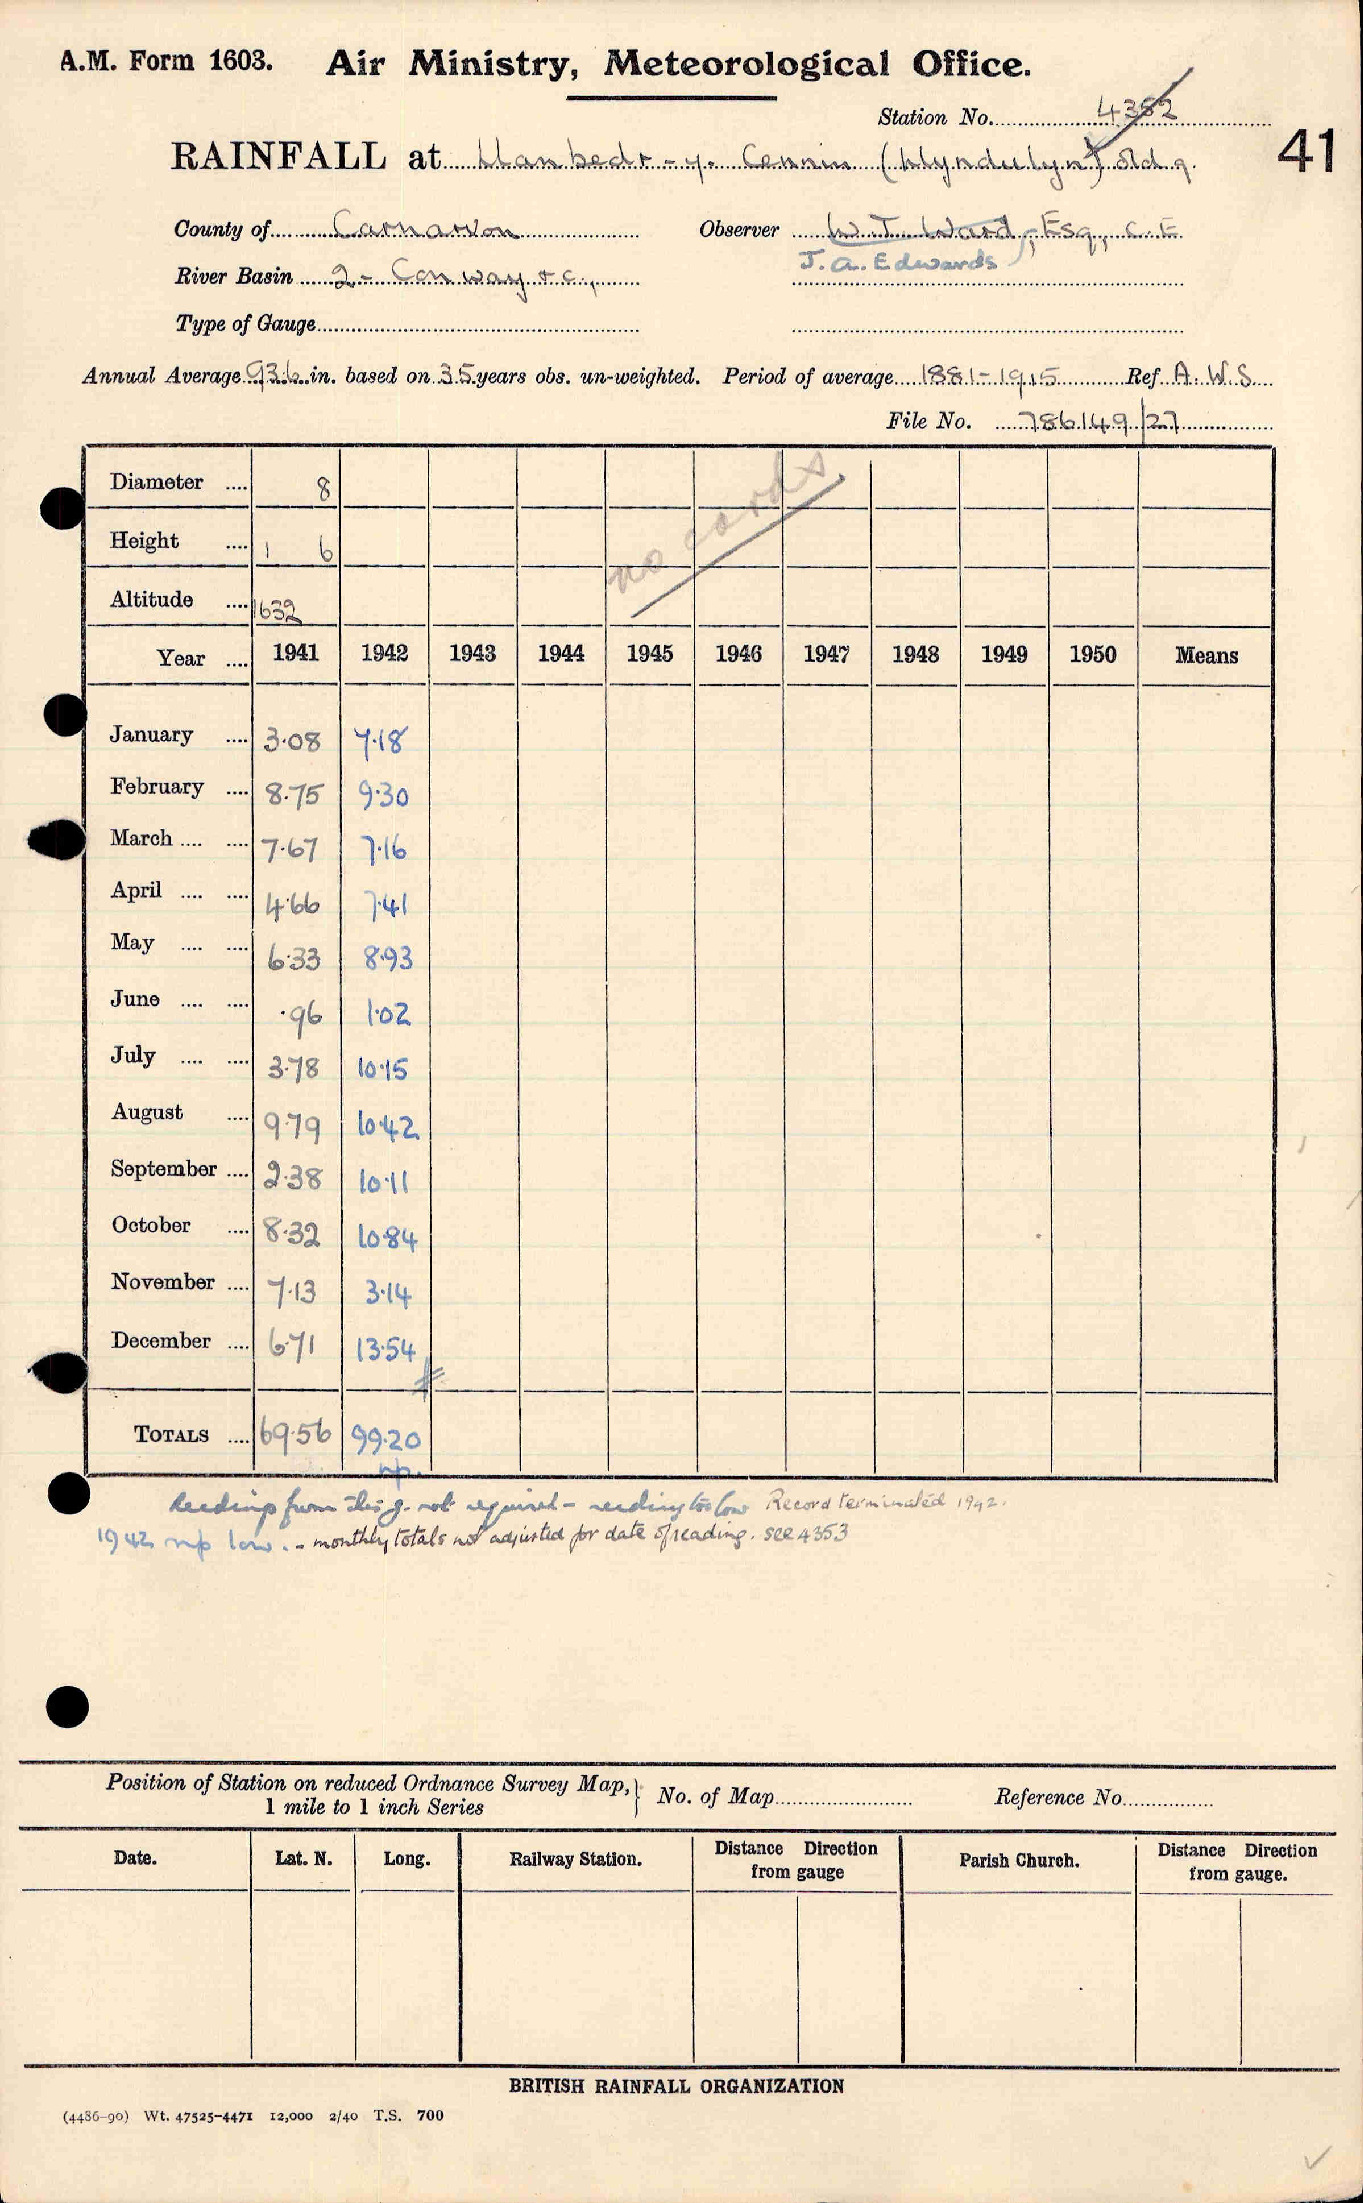 A.M. Form 1603. Air Ministry, Meteorological Office.
Station No. 4352
RAINFALL at Llanbedr-y-Cennin (Llyndulyn) Old g. 41
County of Carnarvon Observer W. T. Ward, Esq, C.E.
J. A. Edwards
River Basin 2 - Conway &c.,
Type of Gauge
Annual Average 93.6 in. based on 35 years obs. un-weighted. Period of average 1881-1915 Ref A. W. S.
File No. 786149/27
no cards
Diameter .... 8
Height .... 1 6
Altitude .... 1632
Year .... 1941 1942 1943 1944 1945 1946 1947 1948 1949 1950 Means
January .... 3.08 7.18
February .... 8.75 9.30
March .... .... 7.67 7.16
April .... .... 4.66 7.41
May .... .... 6.33 8.93
June .... .... .96 1.02
July .... .... 3.78 10.15
August .... 9.79 10.42
September .... 2.38 10.11
October .... 8.32 10.84
November .... 7.13 3.14
December .... 6.71 13.54
TOTALS .... 69.56 99.20
np.
Readings from this g. not required - reading too low Record terminated 1942.
1942 np low. - monthly totals not adjusted for date of reading. see 4353
Position of Station on reduced Ordnance Survey Map, } No. of Map Reference No.
1 mile to 1 inch Series
Date. Lat. N. Long. Railway Station. Distance Direction from gauge Parish Church. Distance Direction from gauge.
BRITISH RAINFALL ORGANIZATION
(4486-90) Wt. 47525-4471 12,000 2/40 T.S. 700